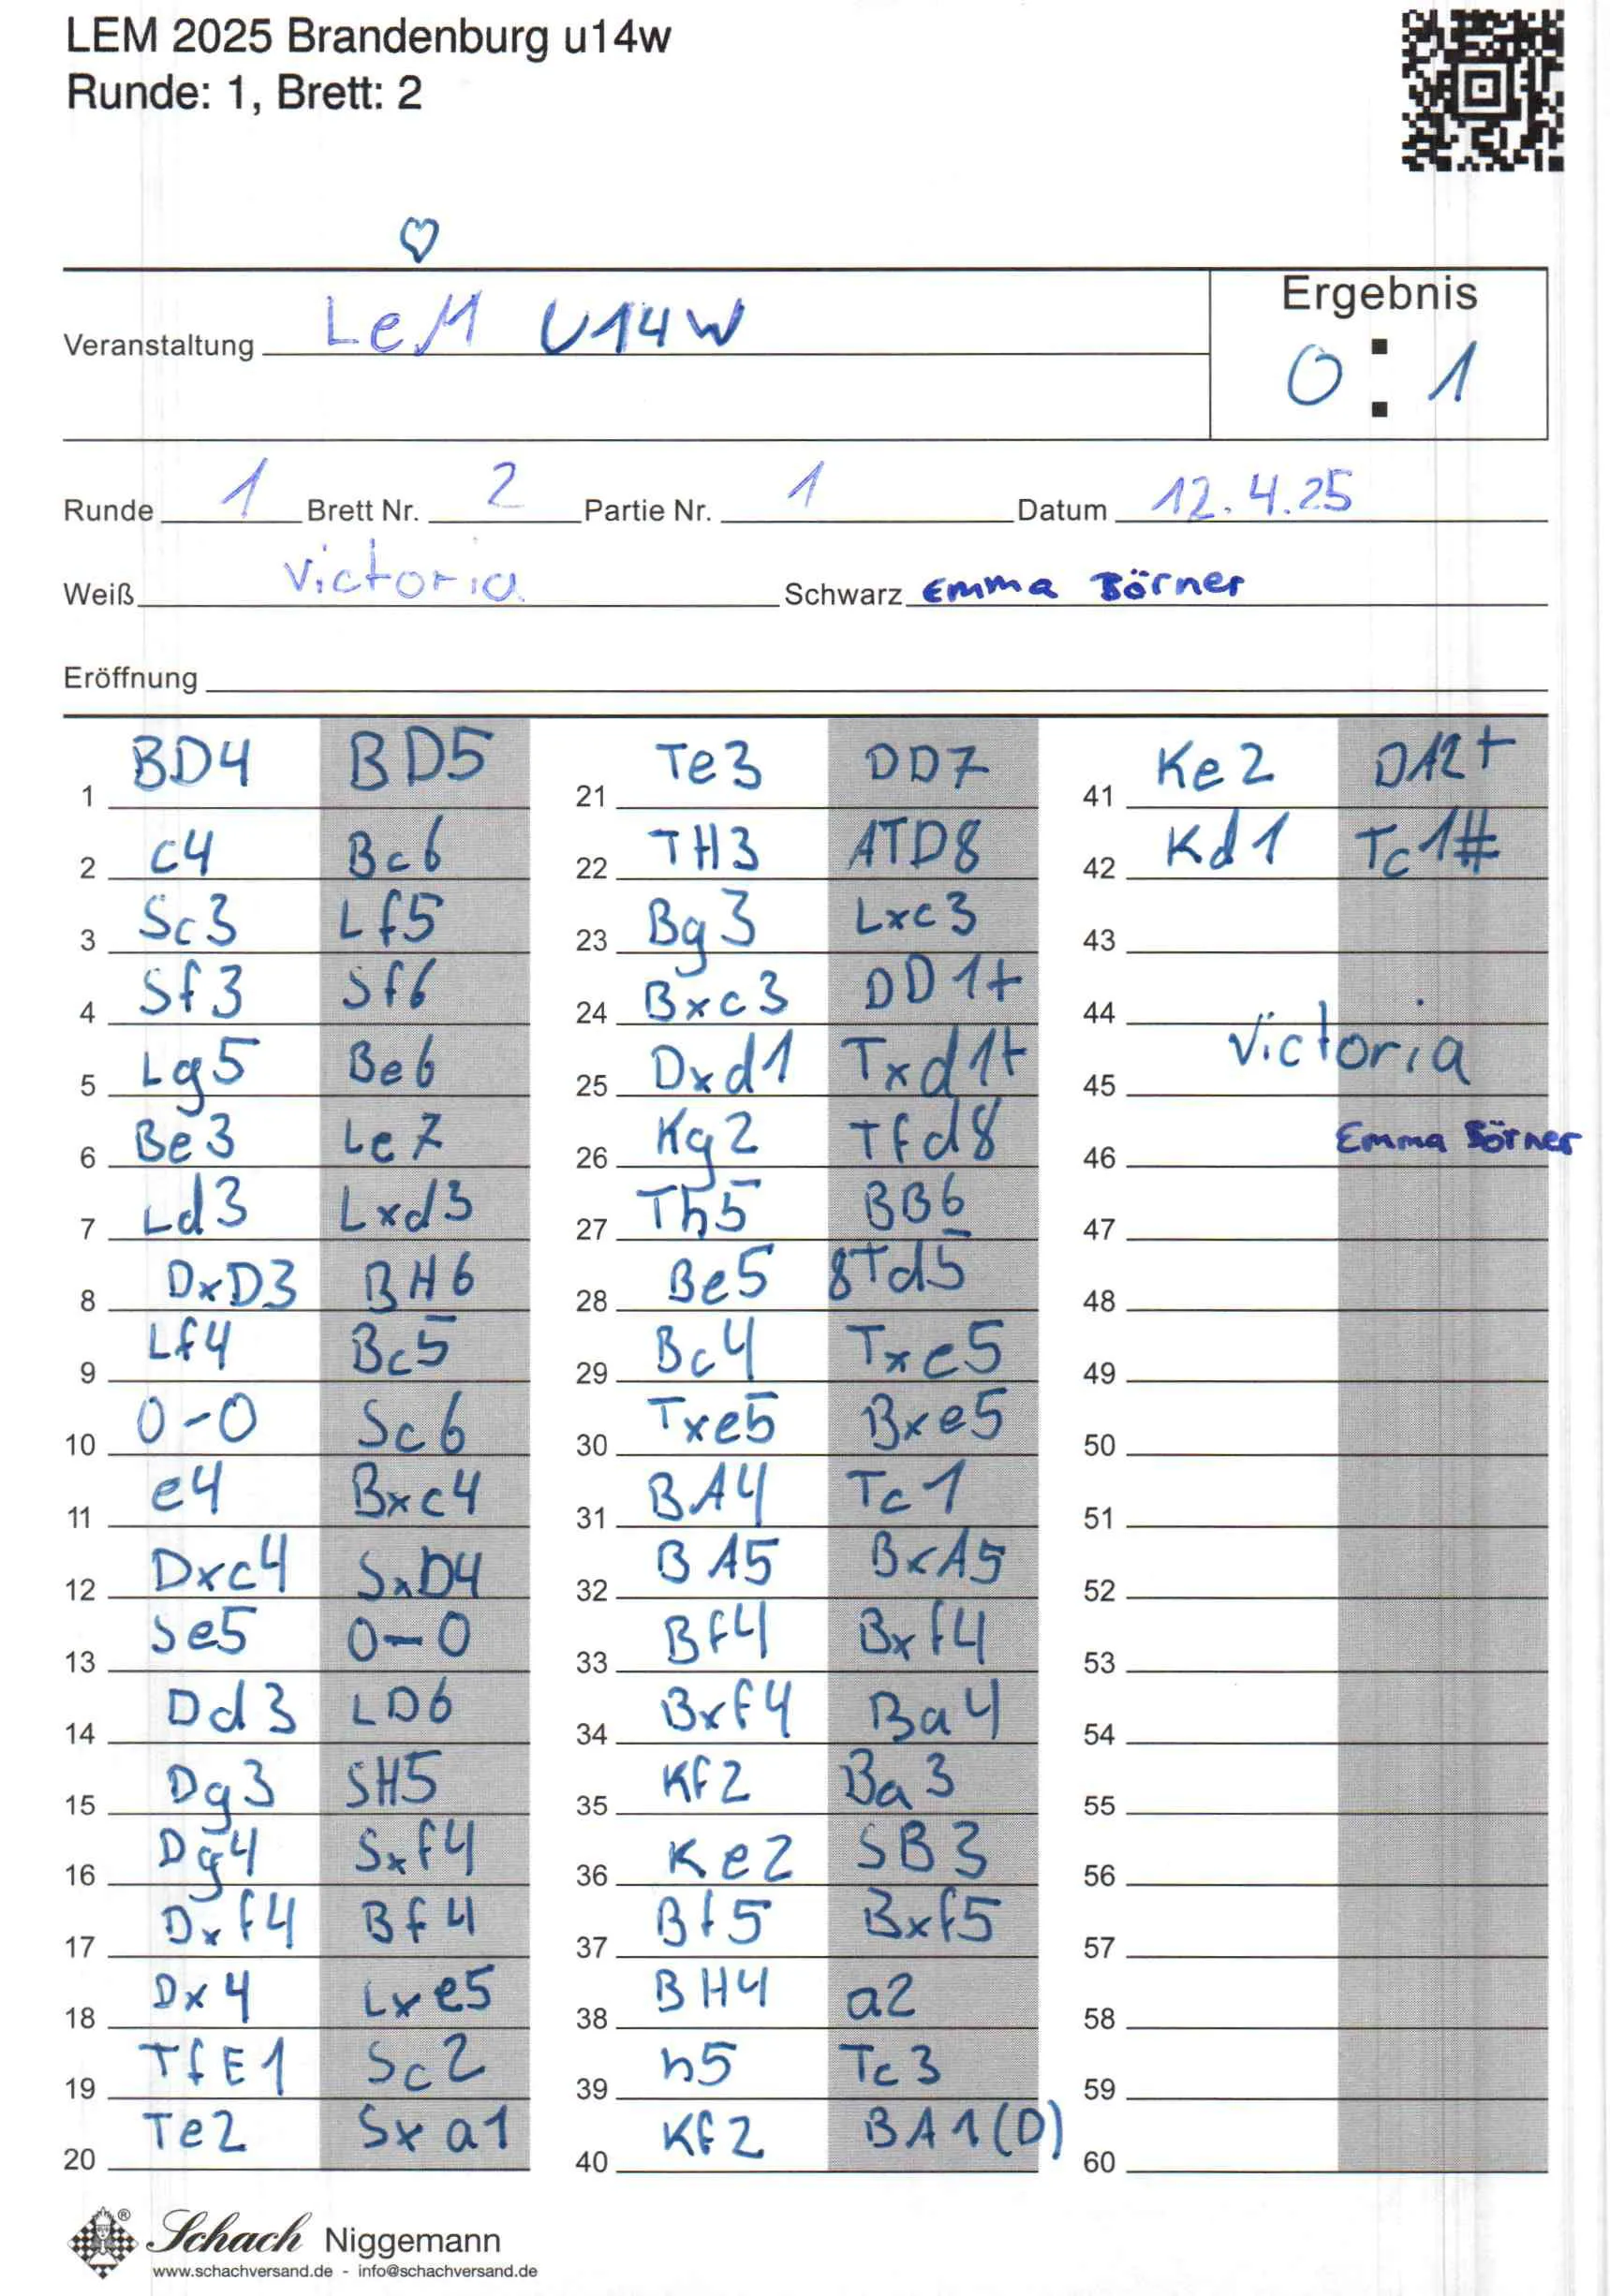 LEM 2025 Brandenburg u14w
Runde: 1, Brett: 2
Veranstaltung LeM U14W
Ergebnis
0 : 1
Runde 1 Brett Nr. 2 Partie Nr. 1 Datum 12.4.25
Weiß Victoria Schwarz Emma Börner
Eröffnung
1 BD4 BD5
2 c4 Bc6
3 Sc3 Lf5
4 Sf3 Sf6
5 Lg5 Be6
6 Be3 Le7
7 Ld3 Lxd3
8 DxD3 BH6
9 Lf4 Bc5
10 0-0 Sc6
11 e4 Bxc4
12 Dxc4 SxD4
13 Se5 0-0
14 Dd3 LD6
15 Dg3 SH5
16 Dg4 Sxf4
17 Dxf4 Bf4
18 Dx4 Lxe5
19 TfE1 Sc2
20 Te2 Sxa1
21 Te3 DD7
22 TH3 ATD8
23 Bg3 Lxc3
24 Bxc3 DD1+
25 Dxd1 Txd1+
26 Kg2 Tfd8
27 Th5 BB6
28 Be5 8Td5
29 Bc4 Txe5
30 Txe5 Bxe5
31 BA4 Tc1
32 BA5 BxA5
33 Bf4 Bxf4
34 Bxf4 Ba4
35 Kf2 Ba3
36 Ke2 SB3
37 Bf5 Bxf5
38 BH4 a2
39 h5 Tc3
40 Kf2 BA1(D)
41 Ke2 DA2+
42 Kd1 Tc1#
43
44
Victoria
45
46 Emma Börner
47
48
49
50
51
52
53
54
55
56
57
58
59
60
Schach Niggemann
www.schachversand.de - info@schachversand.de